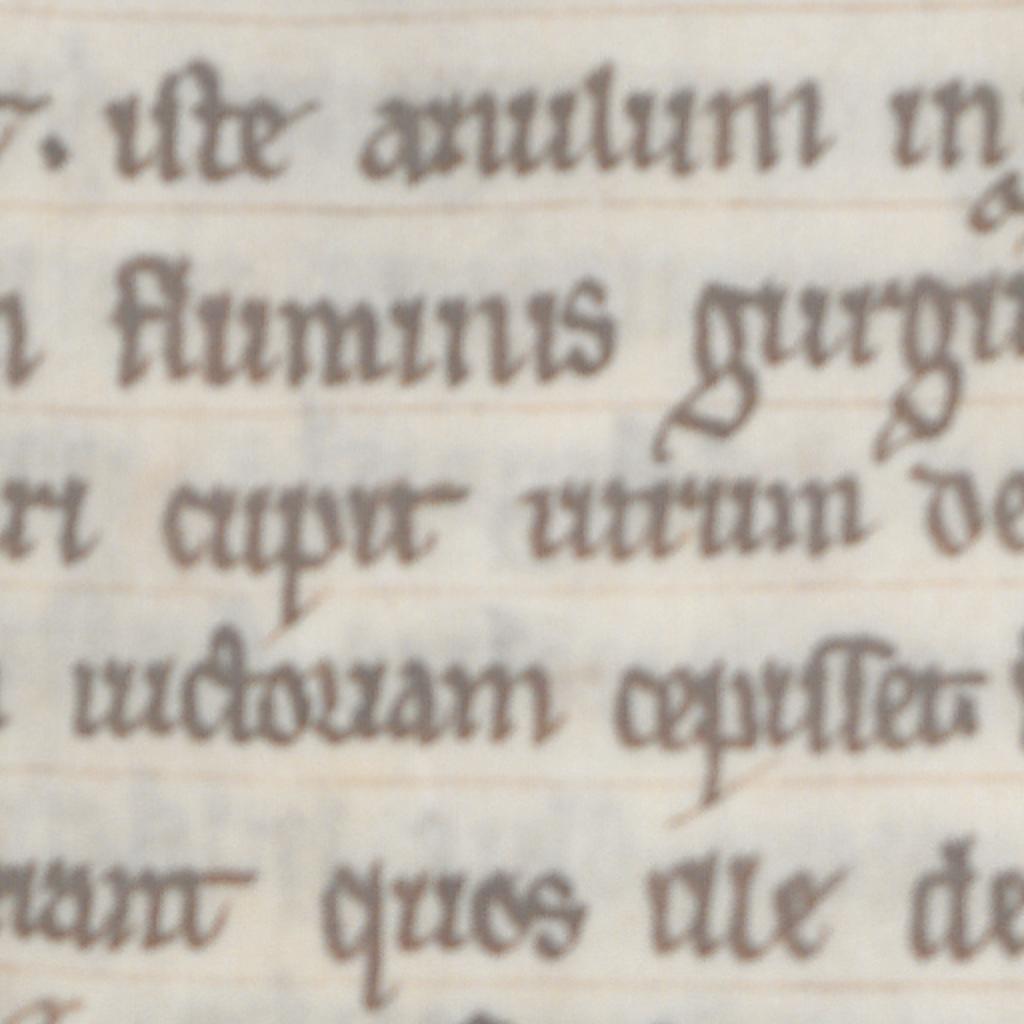 . iste anulum in
fluminis gurgi
ri cupit utrum de
uictoriam cepisset.
rant quos ille de